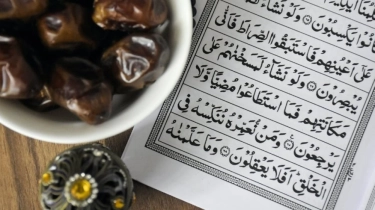 يَكْسِبُوْنَ ۝ وَلَوْ نَشَآءُ
عَلٰٓى اَعْيُنِهِمْ فَاسْتَبَقُوا الصِّرَاطَ فَاَنّٰى
يُبْصِرُوْنَ ۝ وَلَوْ نَشَآءُ لَمَسَخْنٰهُمْ عَلٰى
مَكَانَتِهِمْ فَمَا اسْتَطَاعُوْا مُضِيًّا وَّلَا
يَرْجِعُوْنَ ۝ وَمَنْ نُّعَمِّرْهُ نُنَكِّسْهُ فِى
الْخَلْقِ ؕ اَفَلَا يَعْقِلُوْنَ ۝ وَمَا عَلَّمْنٰهُ